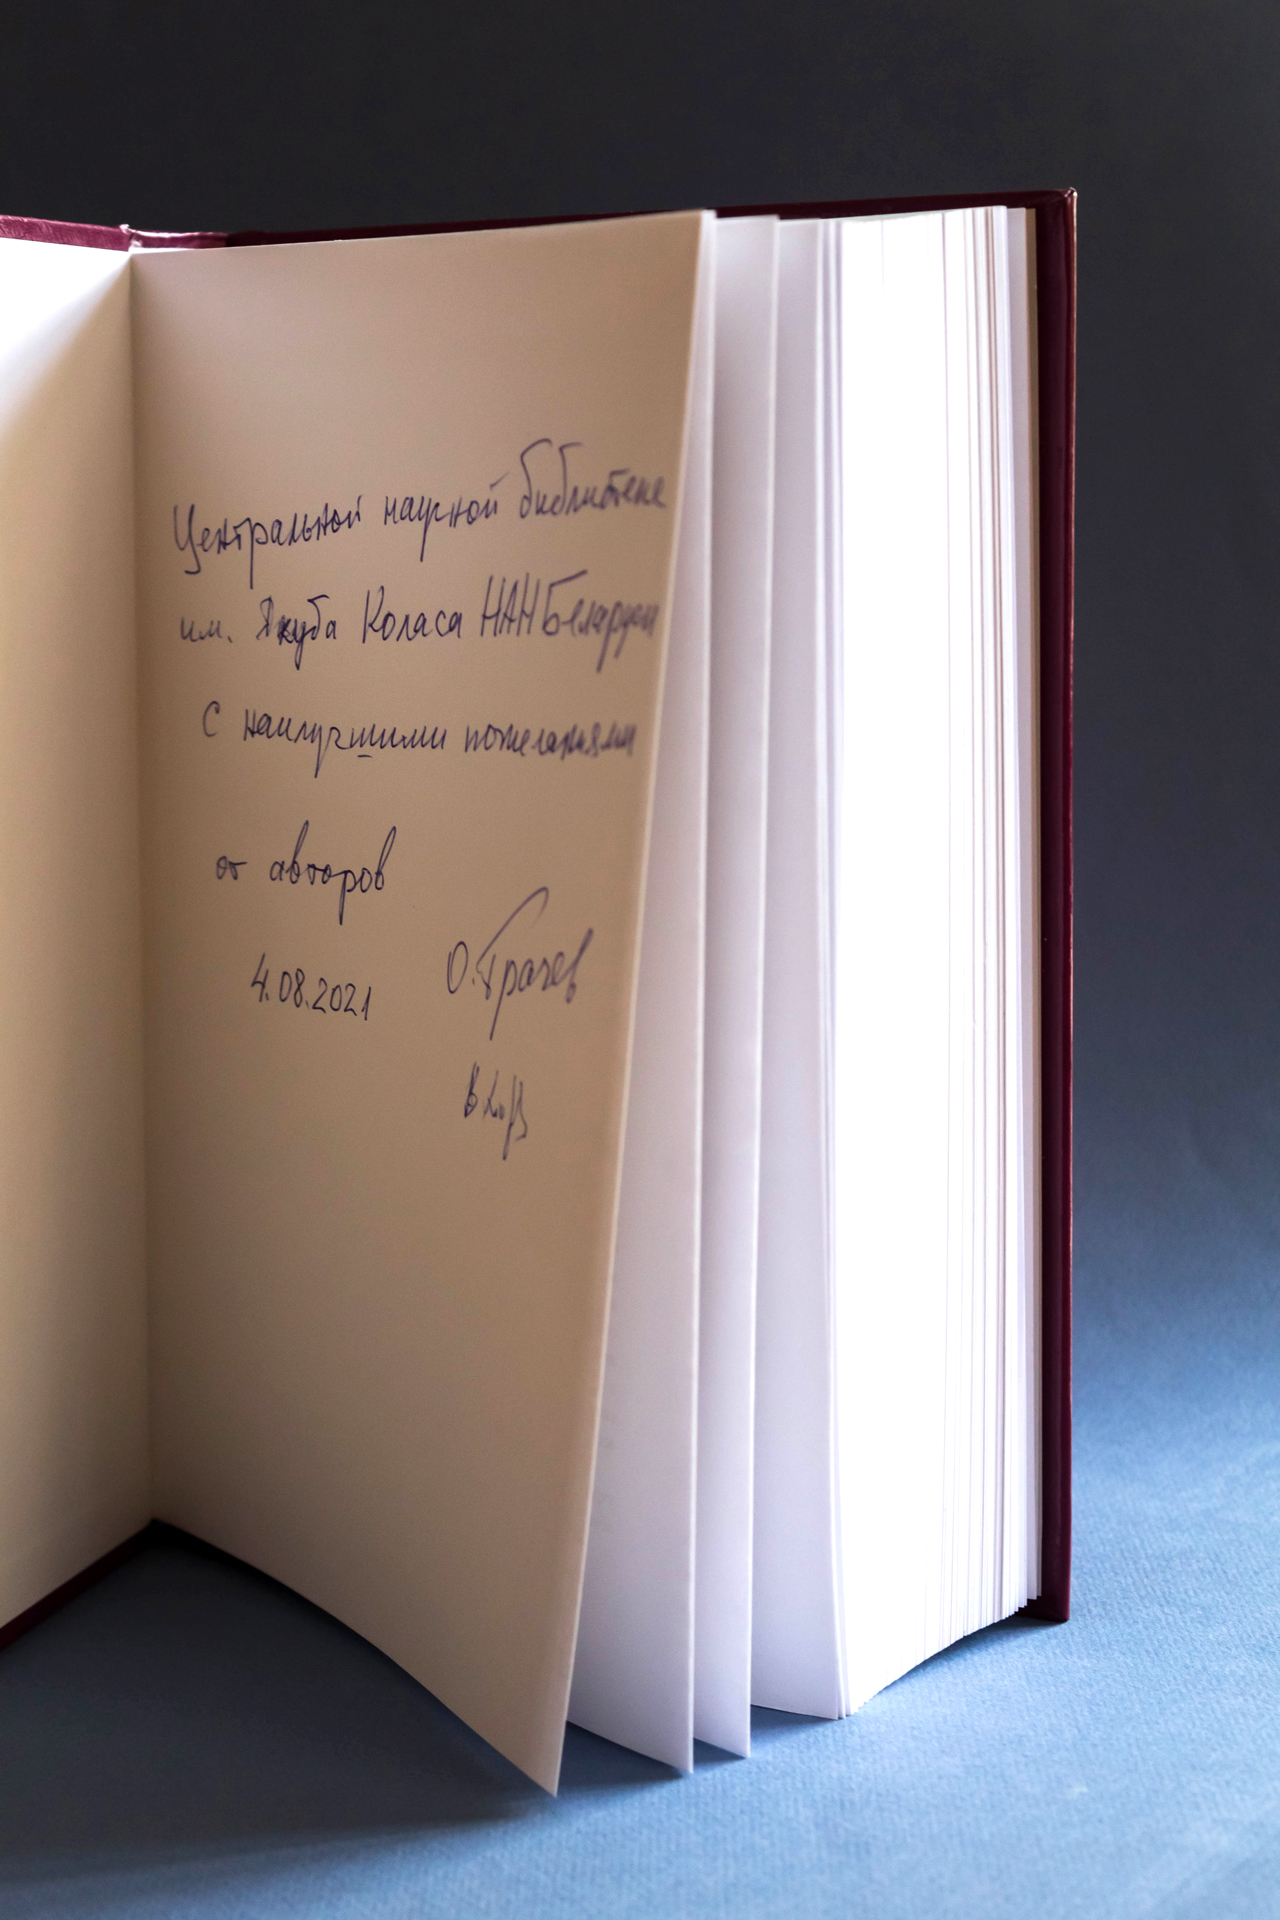 Центральной научной библиотеке
им. Якуба Коласа НАН Беларуси
С наилучшими пожеланиями
от авторов
4.08.2021 О. Грачев